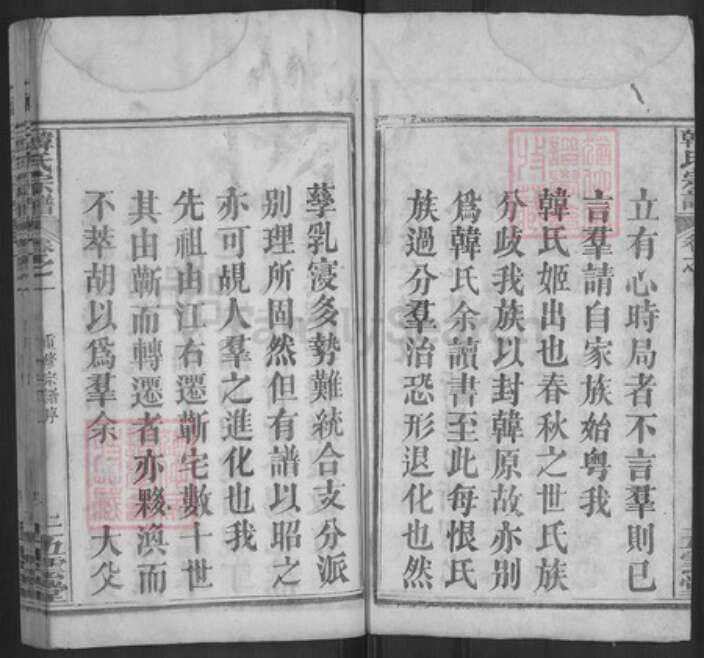 立有心時局者不言羣則已
言羣請自家族始粵我
韓氏姬出也春秋之世氏族
分歧我族以封韓原故亦別
爲韓氏余讀書至此每恨氏
族過分羣治恐形退化也然
孳乳寖多勢難統合支分派
別理所固然但有譜以昭之
亦可覘人羣之進化也我
先祖由江右遷蘄宅數十世
其由蘄而轉遷者亦夥渙而
不萃胡以爲羣余　大父
韓氏宗譜
卷之一
重修宗譜序
二
五雲堂